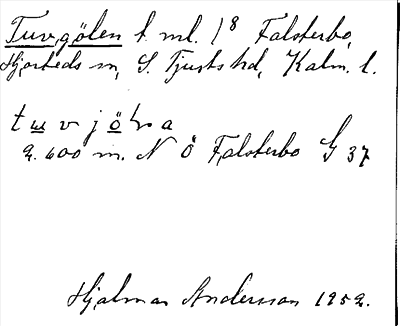 Tuvgölen t. ml. 1⁸ Falsterbo,
Hjorteds sn, S. Tjusts hd, Kalm. l.
tuvjöḷna
2. 600 m. N Ö Falsterbo G 37
Hjalmar Andersson 1952.